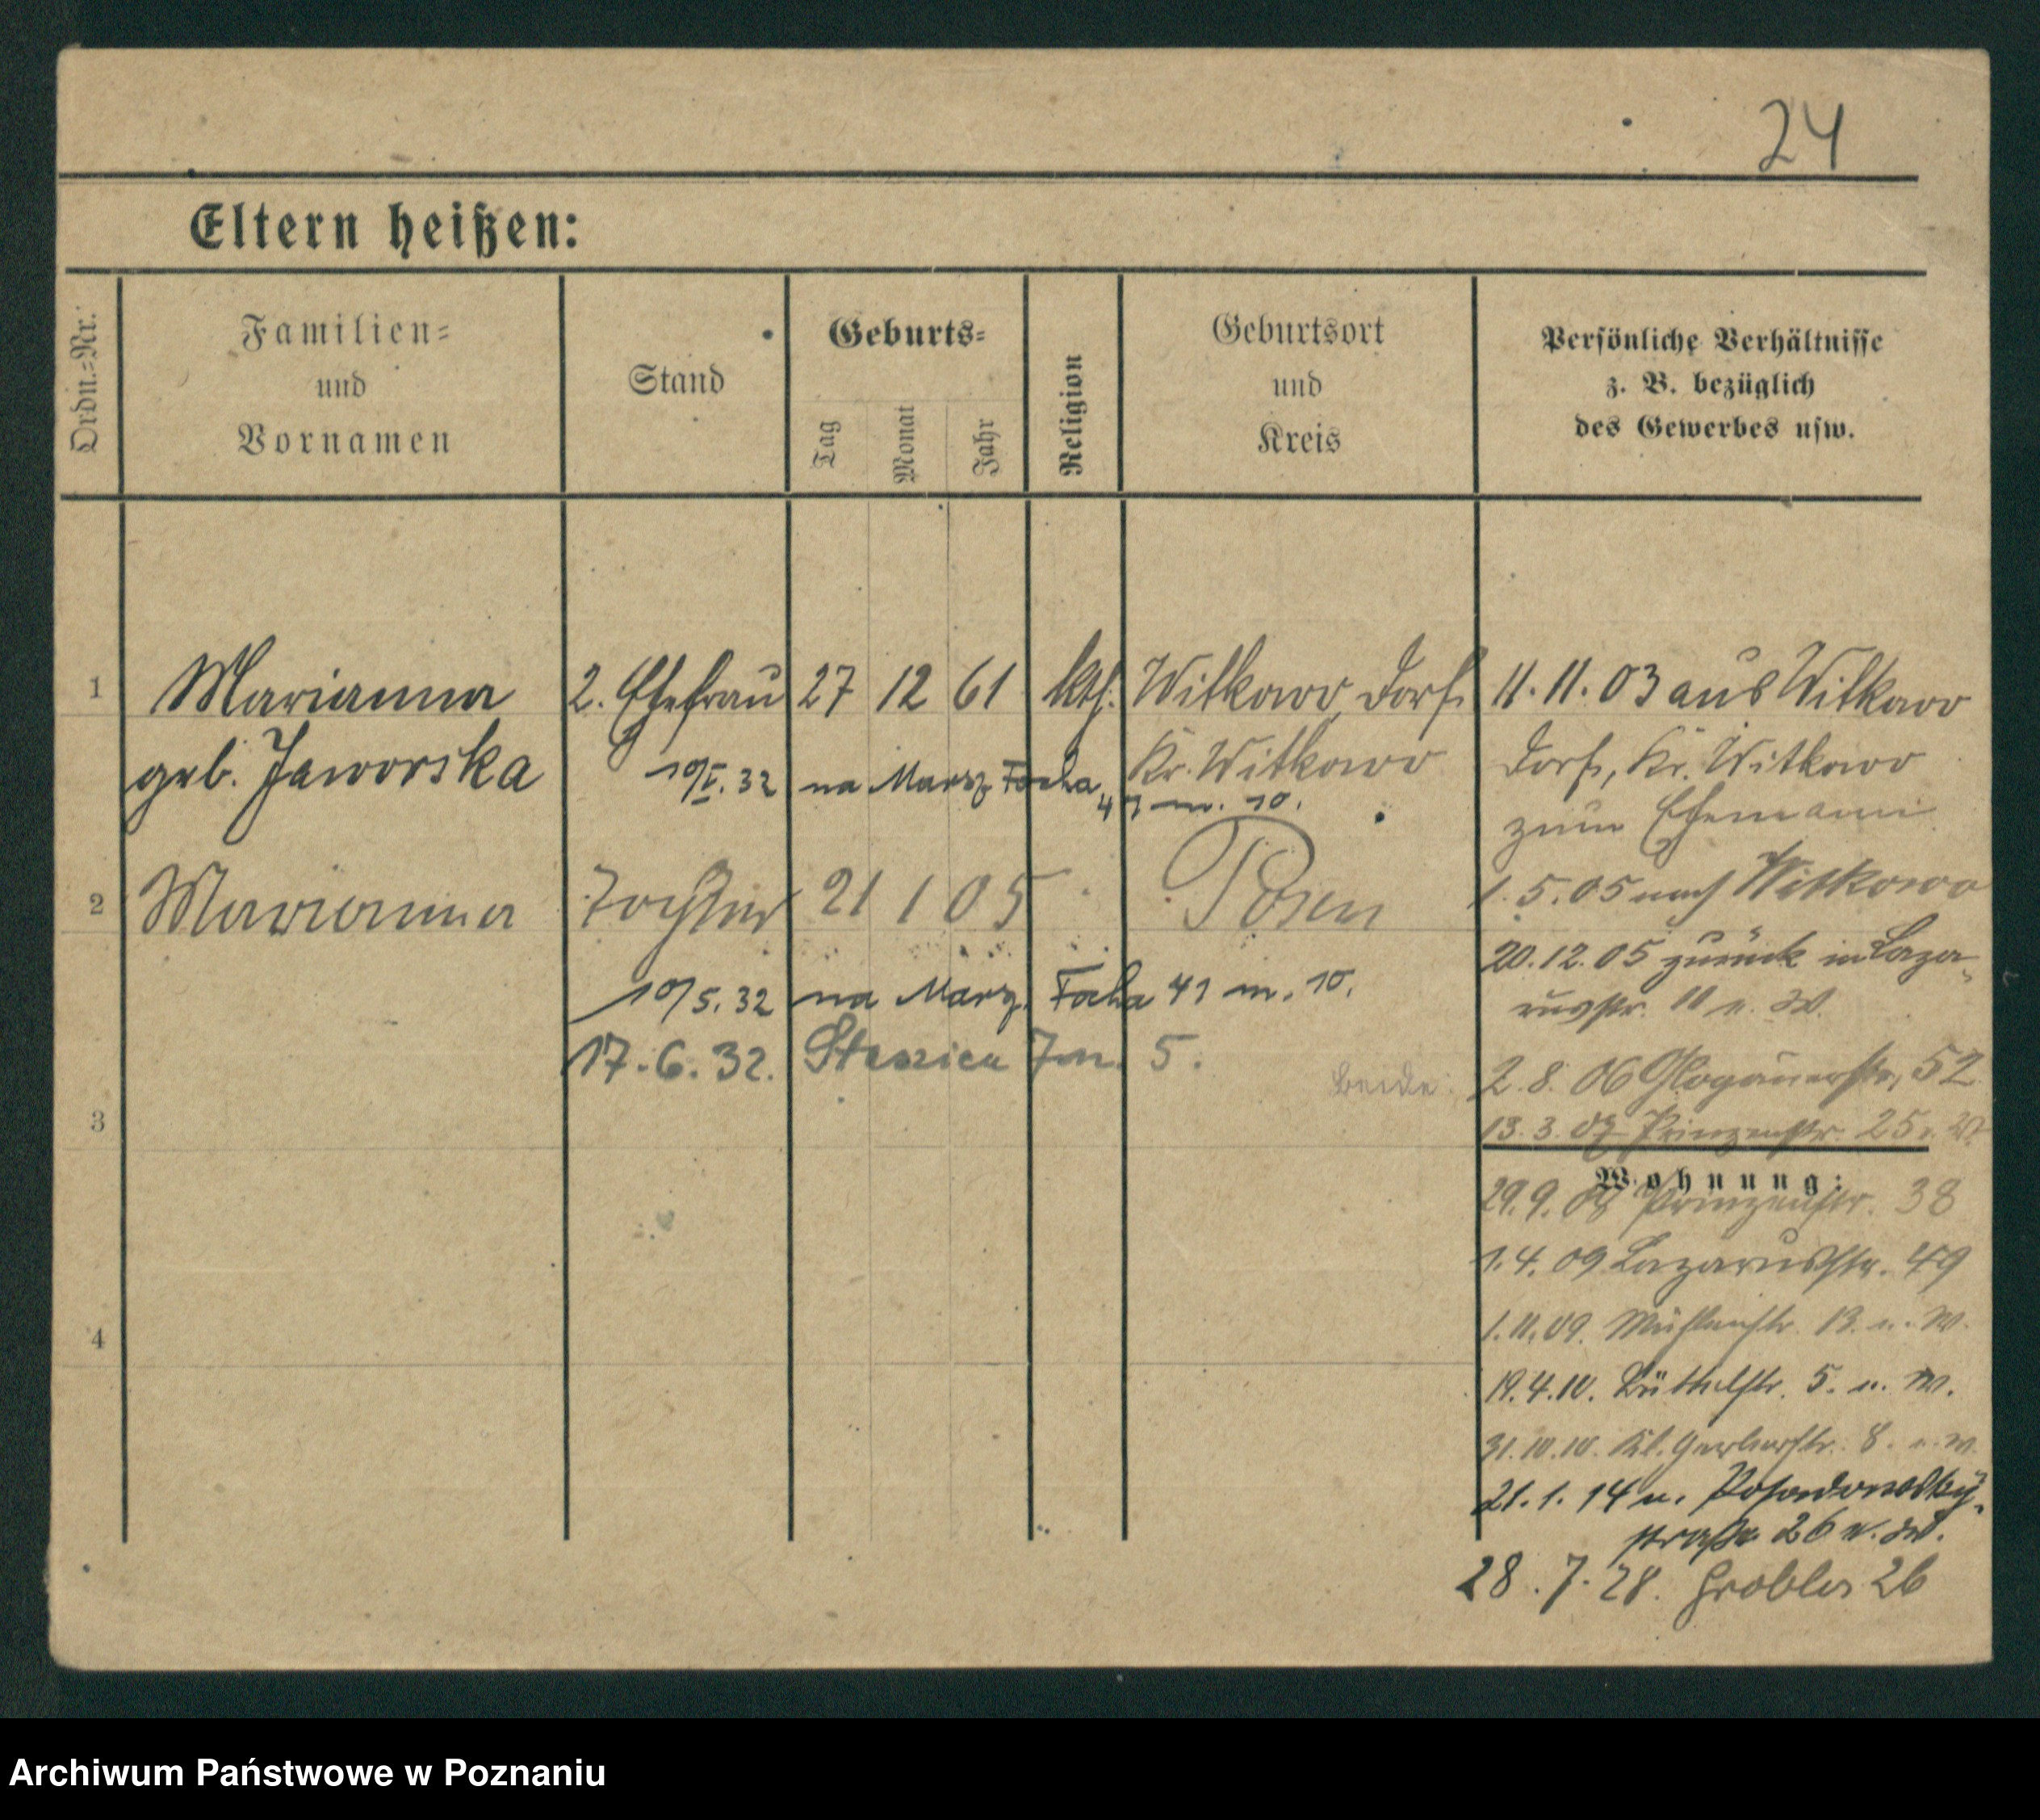 24
Eltern heißen:
Ordn.=Nr.
Familien=
und
Vornamen
Stand
Geburts=
Tag
Monat
Jahr
Religion
Geburtsort
und
Kreis
Persönliche Verhältnisse
z. B. bezüglich
des Gewerbes usw.
1 Marianna 2. Ehefrau 27 12 61 kth. Witkowo Dorf
geb. Jaworska Kr. Witkowo
10/V. 32 na Marsz. Focha 41 m. 10.
11. 11. 03 aus Witkowo
Dorf, Kr. Witkowo
zum Ehemann
2 Marianna Tochter 21 1 05 Posen
10/5. 32 na Marsz. Focha 41 m. 10.
17. 6. 32. Staszica 7 m. 5.
beide
1. 5. 05 nach Witkowo
20. 12. 05 zurück in Laza-
russtr. 11 n. W.
2. 8. 06 Glogauerstr. 52
13. 3. 07 Prinzenstr. 25 n. W.
3
Wohnung:
29. 9. 08 Prinzenstr. 38
1. 4. 09 Lazarusstr. 49
1. 11. 09. Mühlenstr. 13. n. W.
19. 4. 10. Büttelstr. 5. n. W.
4
31. 10. 10. Kl. Gerberstr. 8. n. W.
21. 1. 14 n. Posadowsky-
straße 26 n. W.
28. 7. 28. Grobla 26
Archiwum Państwowe w Poznaniu